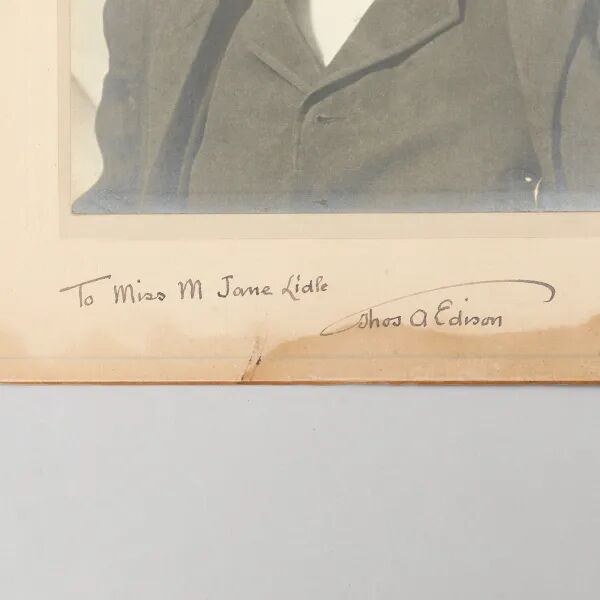 To Miss M Jane Lidle
Thos A Edison